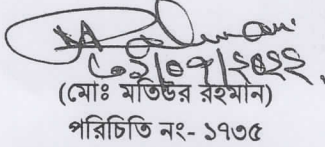 ০৩/০৭/২০২২
(মোঃ মতিউর রহমান)
পরিচিতি নং- ১৭৩৫